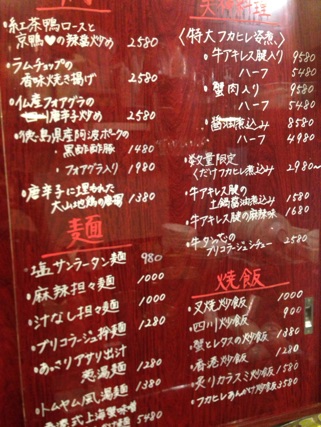 ・紅茶鴨ロースと
京鴨♥の辣醤炒め 2580
・ラムチョップの
香味焼き揚げ 2580
・仏産フォアグラの
唐辛子炒め 2580
・徳島県産阿波ポークの
黒酢酢豚 1480
・フォアグラ入り 1980
・唐辛子に埋まれた
大山地鶏の唐揚 1380
麺
・塩サンラータン麺 980
・麻辣担々麺 1000
・汁なし担々麺 1000
・ブリコラージュ幹麺 1280
・あさりアサリ出汁
葱湯麺 1280
・トムヤム風湯麺 1380
上海蟹味噌 5480
〈特大フカヒレ姿煮〉
・牛アキレス腱入り 9580
ハーフ 5480
・蟹肉入り 9580
ハーフ 5480
・醤油煮込み 8580
ハーフ 4980
・数量限定
〈くだけフカヒレ煮込み〉 2980〜
・牛アキレス腱の
土鍋醤油煮込み 1580
・牛アキレス腱の麻辣味 1680
・牛タンの
ブリコラージュシチュー 2580
焼飯
・叉焼炒飯 1000
・四川炒飯 900
・蟹とレタスの炒飯 1380
・香港炒飯 1280
・炙りカラスミ炒飯 1580
・フカヒレあんかけ炒飯 3580